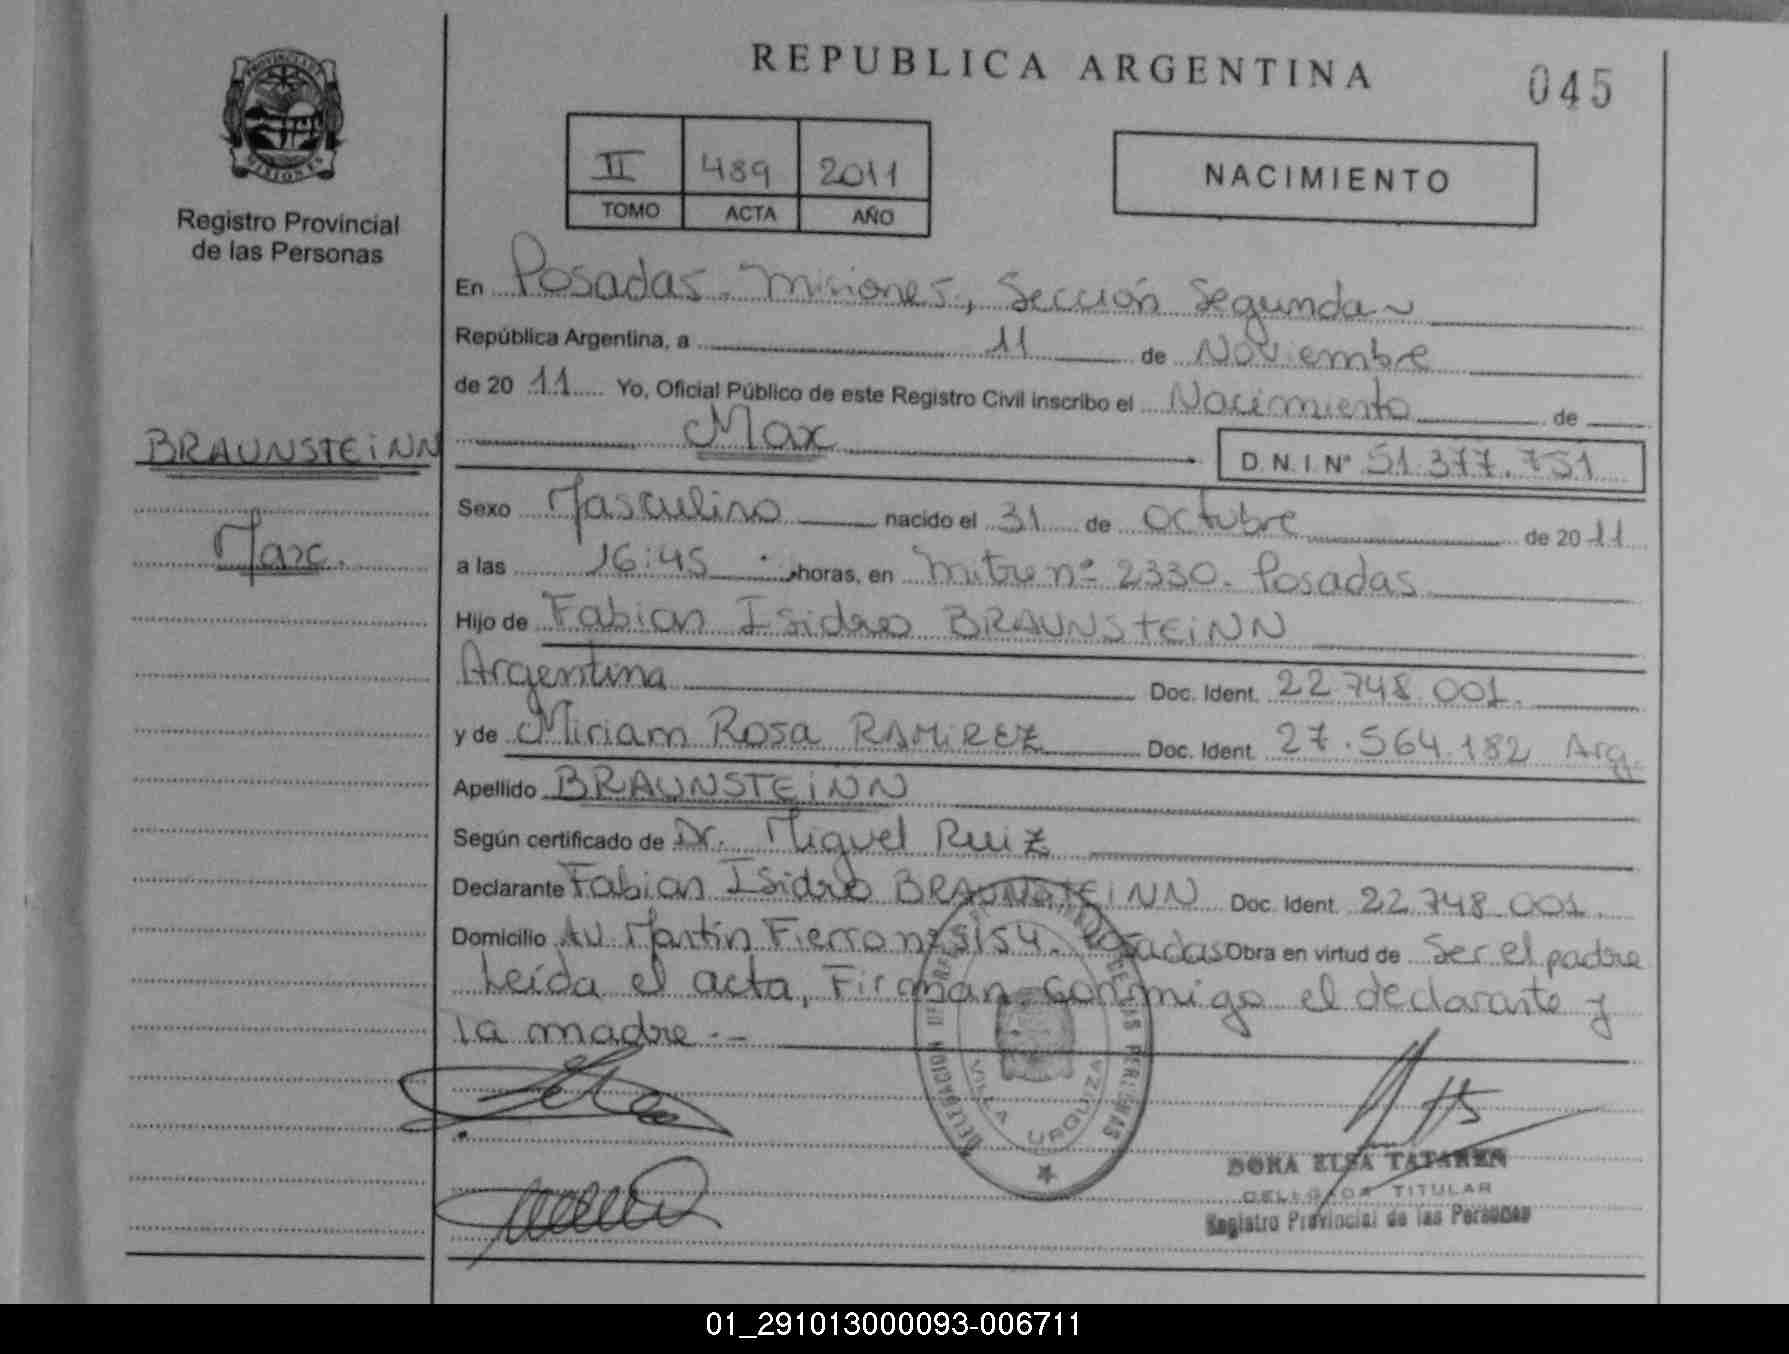 REPUBLICA ARGENTINA
045
PROVINCIA DE MISIONES
Registro Provincial
de las Personas
II 489 2011
TOMO ACTA AÑO
NACIMIENTO
En Posadas. Misiones, Sección Segunda
República Argentina, a 11 de Noviembre
de 2011 Yo, Oficial Público de este Registro Civil inscribo el Nacimiento de
Max D.N.I. Nº 51.377.751
BRAUNSTEiNN
Max.
Sexo Masculino nacido el 31 de Octubre de 2011
a las 16:45 horas, en Mitre nº 2330. Posadas
Hijo de Fabian Isidro BRAUNSTEiNN
Argentina Doc. Ident. 22.748.001.
y de Miriam Rosa RAMiREZ Doc. Ident. 27.564.182 Arg.
Apellido BRAUNSTEiNN
Según certificado de Dr. Miguel Ruiz
Declarante Fabian Isidro BRAUNSTEiNN Doc. Ident. 22.748.001.
Domicilio Av. Martín Fierro nº 5154. Posadas Obra en virtud de Ser el padre
Leída el acta, Firman conmigo el declarante y
la madre.-
VILLA URQUIZA
DORA ELSA TATAREN
DELEGADA TITULAR
Registro Provincial de las Personas
01_291013000093-006711